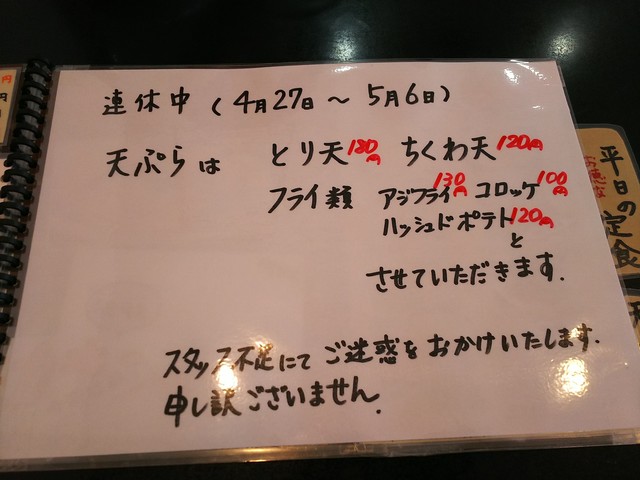 連休中 (4月27日 ～ 5月6日)
天ぷらは とり天180円 ちくわ天120円
フライ類 アジフライ130円 コロッケ100円
ハッシュドポテト120円
と
させていただきます.
スタッフ不足にて ご迷惑を おかけいたします.
申し訳ございません.
平日の定食
お得な
円
円